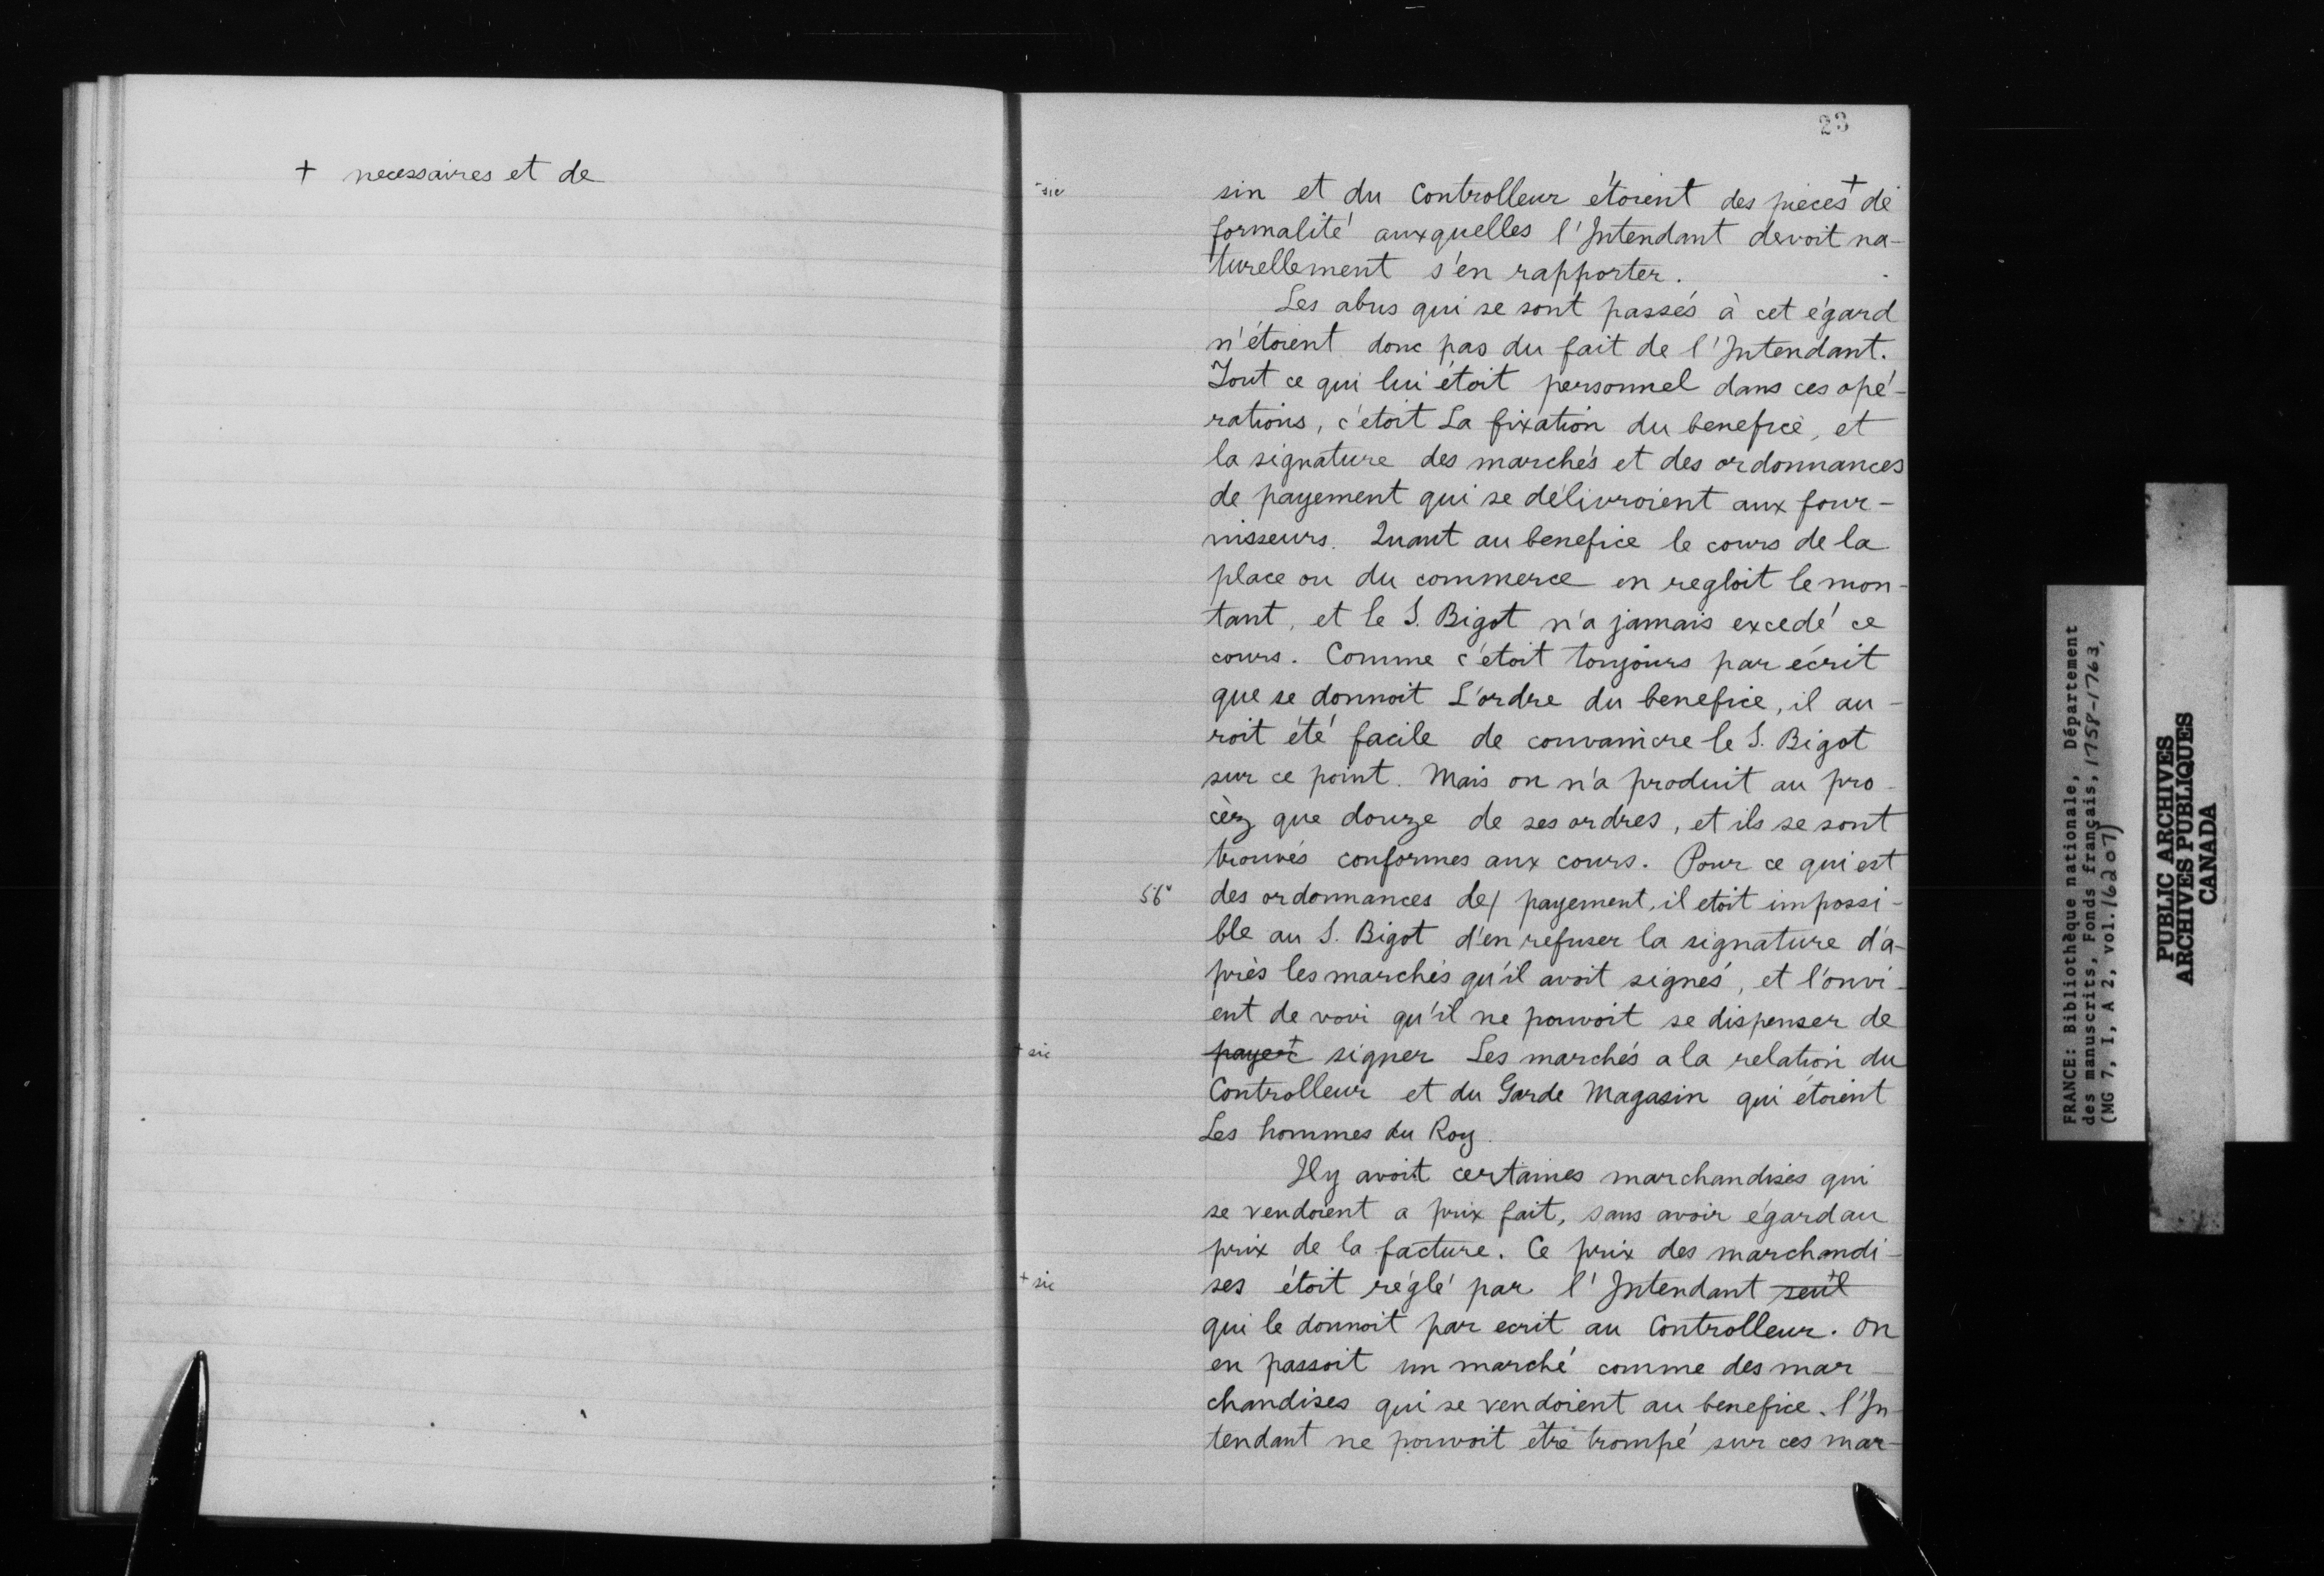 + necessaires et de
23
sic
sin et du Controlleur étoient des pieces + de
formalité auxquelles l'Intendant devoit na-
turellement s'en rapporter.
Les abus qui se sont passés à cet égard
n'étoient donc pas du fait de l'Intendant.
Tout ce qui lui étoit personnel dans ces opé-
rations, c'étoit La fixation du benefice, et
la signature des marchés et des ordonnances
de payement qui se délivroient aux four-
nisseurs. Quant au benefice le cours de la
place ou du commerce en regloit le mon-
tant, et le S. Bigot n'a jamais excedé ce
cours. Comme c'étoit toujours par écrit
que se donnoit L'ordre du benefice, il au-
roit été facile de convaincre le S. Bigot
sur ce point. Mais on n'a produit au pro-
cèz que douze de ses ordres, et ils se sont
trouvés conformes aux cours. Pour ce qui est
56v des ordonnances de/ payement, il etoit impossi-
ble au S. Bigot d'en refuser la signature d'a-
près les marchés qu'il avoit signés, et l'onvi-
ent de voir qu'il ne pouvoit se dispenser de
+ sic payer + signer Les marchés a la relation du
Controlleur et du Garde Magasin qui étoient
Les hommes du Roy.
Il y avoit certaines marchandises qui
se vendoient a prix fait, sans avoir égard au
prix de la facture. Ce prix des marchandi-
+ sic ses étoit réglé par l'Intendant seul +
qui le donnoit par ecrit au Controlleur. On
en passoit un marché comme des mar-
chandises qui se vendoient au benefice. l'In-
tendant ne pouvoit être trompé sur ces mar-
FRANCE: Bibliothèque nationale, Département
des manuscrits, Fonds français, 1758-1763,
(MG 7, I, A 2, vol. 16207)
PUBLIC ARCHIVES
ARCHIVES PUBLIQUES
CANADA